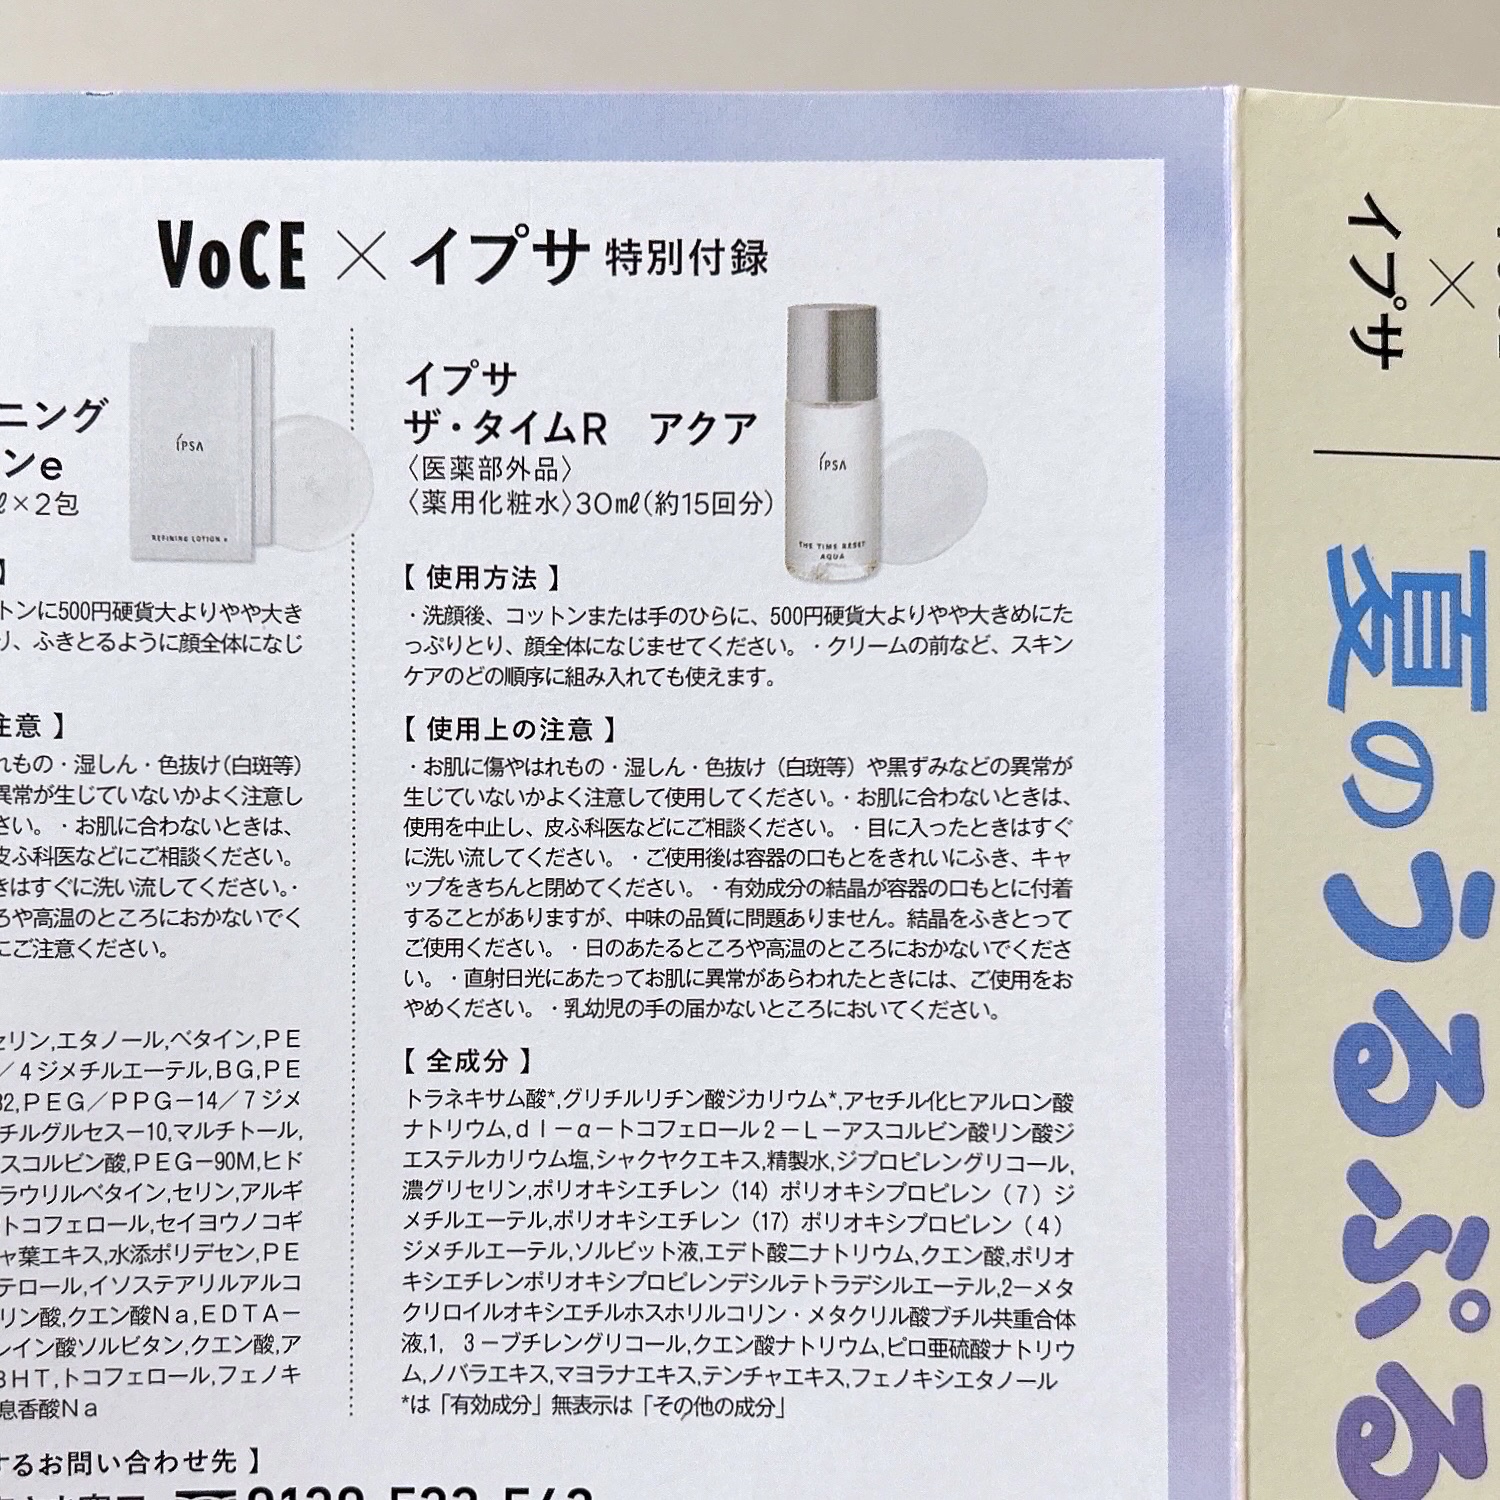 VoCE × イプサ 特別付録
ニング
ンe
ℓ×2包
】
トンに500円硬貨大よりやや大き
り、ふきとるように顔全体になじ
注意 】
れもの・湿しん・色抜け(白斑等)
異常が生じていないかよく注意し
さい。・お肌に合わないときは、
皮ふ科医などにご相談ください。
きはすぐに洗い流してください。・
ろや高温のところにおかないでく
にご注意ください。
セリン,エタノール,ベタイン,PE
／4ジメチルエーテル,BG,PE
32,PEG／PPG－14／7ジメ
チルグルセス－10,マルチトール,
スコルビン酸,PEG－90M,ヒド
ラウリルベタイン,セリン,アルギ
トコフェロール,セイヨウノコギ
ャ葉エキス,水添ポリデセン,PE
テロール,イソステアリルアルコ
リン酸,クエン酸Na,EDTA－
レイン酸ソルビタン,クエン酸,ア
BHT,トコフェロール,フェノキ
息香酸Na
するお問い合わせ先 】
ÍPSA
REFINING LOTION e
イプサ
ザ・タイムR　アクア
〈医薬部外品〉
〈薬用化粧水〉30mℓ(約15回分)
ÍPSA
THE TIME RESET
AQUA
【 使用方法 】
・洗顔後、コットンまたは手のひらに、500円硬貨大よりやや大きめにた
っぷりとり、顔全体になじませてください。・クリームの前など、スキン
ケアのどの順序に組み入れても使えます。
【 使用上の注意 】
・お肌に傷やはれもの・湿しん・色抜け（白斑等）や黒ずみなどの異常が
生じていないかよく注意して使用してください。・お肌に合わないときは、
使用を中止し、皮ふ科医などにご相談ください。・目に入ったときはすぐ
に洗い流してください。・ご使用後は容器の口もとをきれいにふき、キャ
ップをきちんと閉めてください。・有効成分の結晶が容器の口もとに付着
することがありますが、中味の品質に問題ありません。結晶をふきとって
ご使用ください。・日のあたるところや高温のところにおかないでくださ
い。・直射日光にあたってお肌に異常があらわれたときには、ご使用をお
やめください。・乳幼児の手の届かないところにおいてください。
【 全成分 】
トラネキサム酸*,グリチルリチン酸ジカリウム*,アセチル化ヒアルロン酸
ナトリウム,dl－α－トコフェロール2－L－アスコルビン酸リン酸ジ
エステルカリウム塩,シャクヤクエキス,精製水,ジプロピレングリコール,
濃グリセリン,ポリオキシエチレン（14）ポリオキシプロピレン（7）ジ
メチルエーテル,ポリオキシエチレン（17）ポリオキシプロピレン（4）
ジメチルエーテル,ソルビット液,エデト酸二ナトリウム,クエン酸,ポリオ
キシエチレンポリオキシプロピレンデシルテトラデシルエーテル,2－メタ
クリロイルオキシエチルホスホリルコリン・メタクリル酸ブチル共重合体
液,1，3－ブチレングリコール,クエン酸ナトリウム,ピロ亜硫酸ナトリウ
ム,ノバラエキス,マヨラナエキス,テンチャエキス,フェノキシエタノール
*は「有効成分」無表示は「その他の成分」
×イプサ
夏のうるぷる